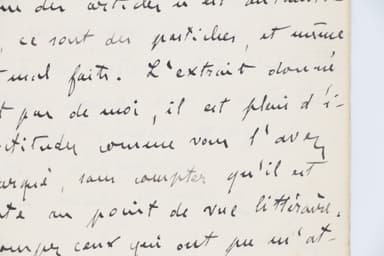 des articles
, ce sont des pastiches, et même
mal faits. L'extrait donné
t pas de moi, il est plein d'i-
titudes comme vous l'avez
arqué, sans compter qu'il est
te au point de vue littéraire.
ceux qui ont pu m'at-